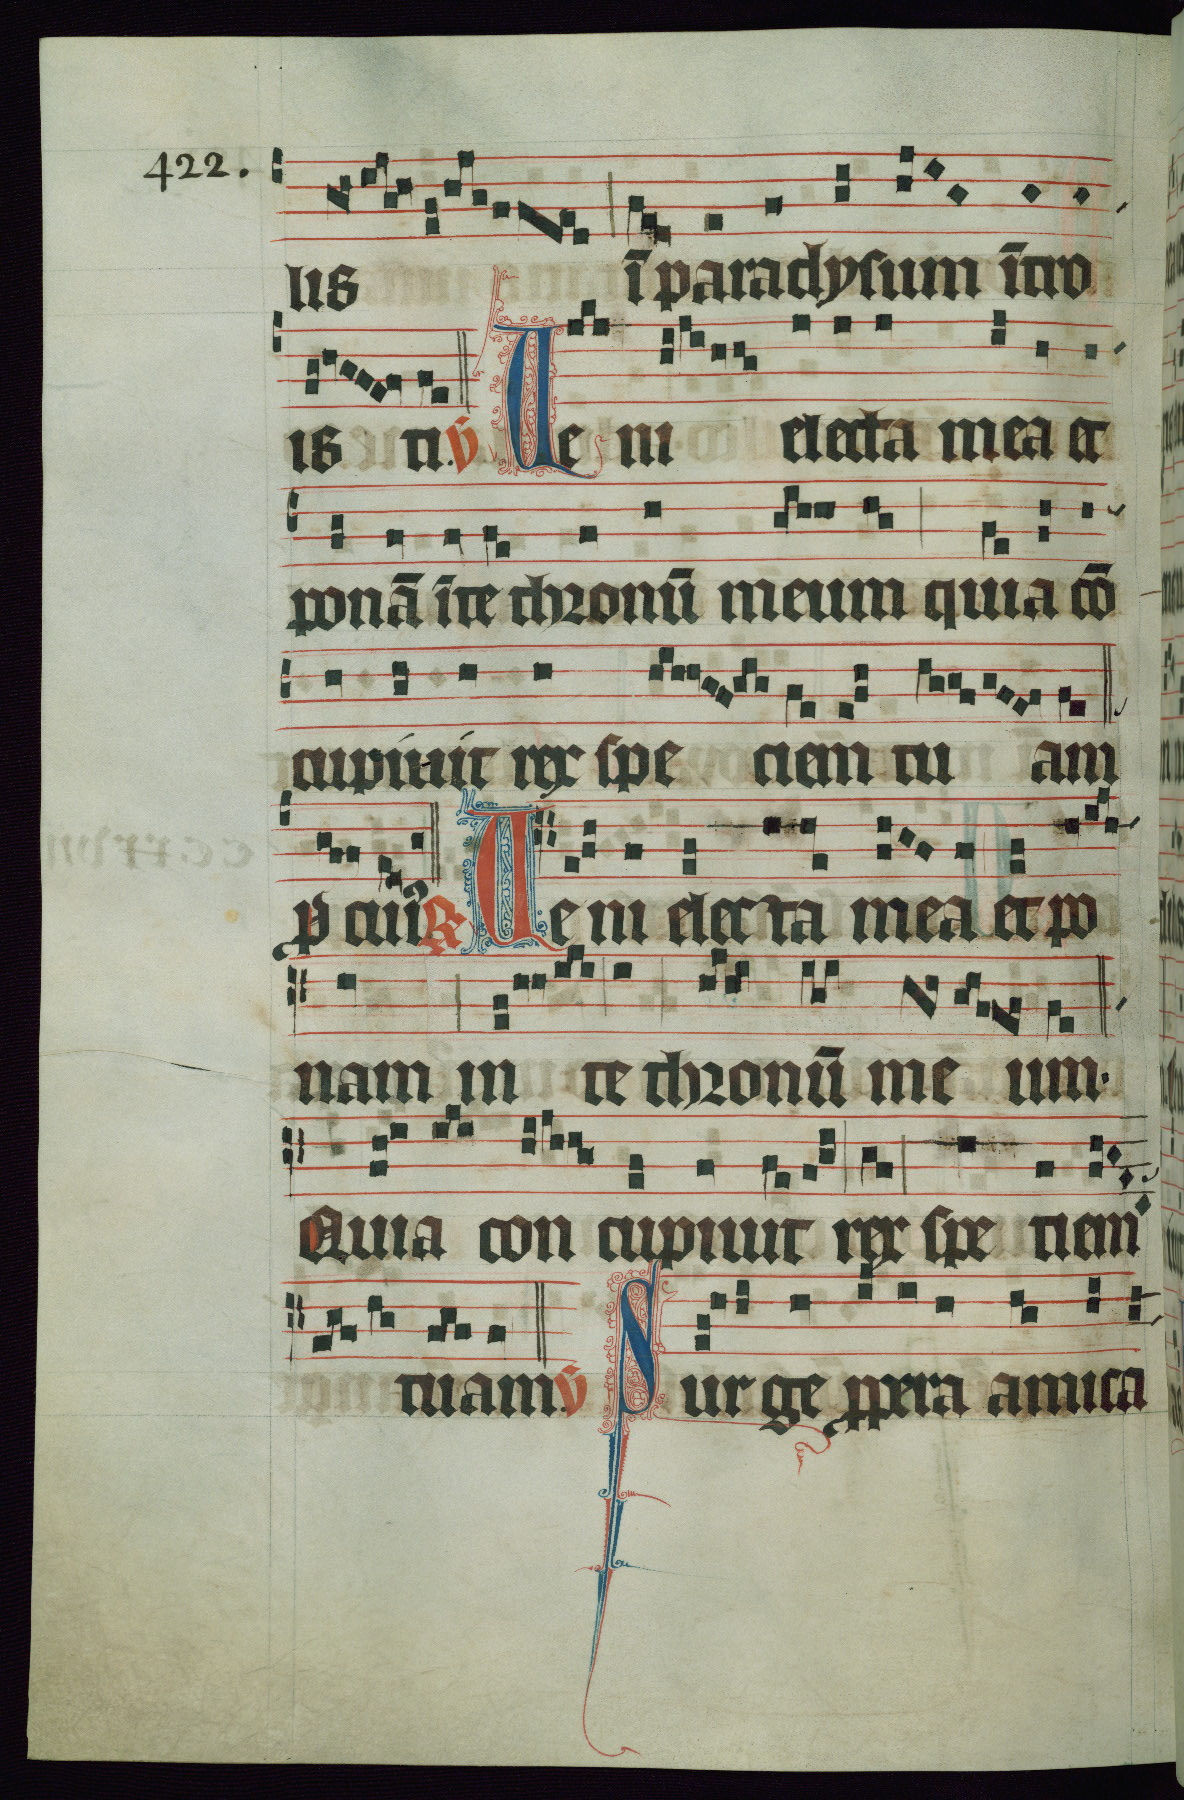 422.
lis ī paradysum ītro
is ti. v̄ Ue ni electa mea et
ponā ī te thronū meum quia cō
cupiuit rex spe ciem tu am
p ciū R Ue ni elec ta mea et po
nam in te thronū me um.
Quia con cupiuit rex spe ciem
tuam. v̄ Sur ge ppera amica